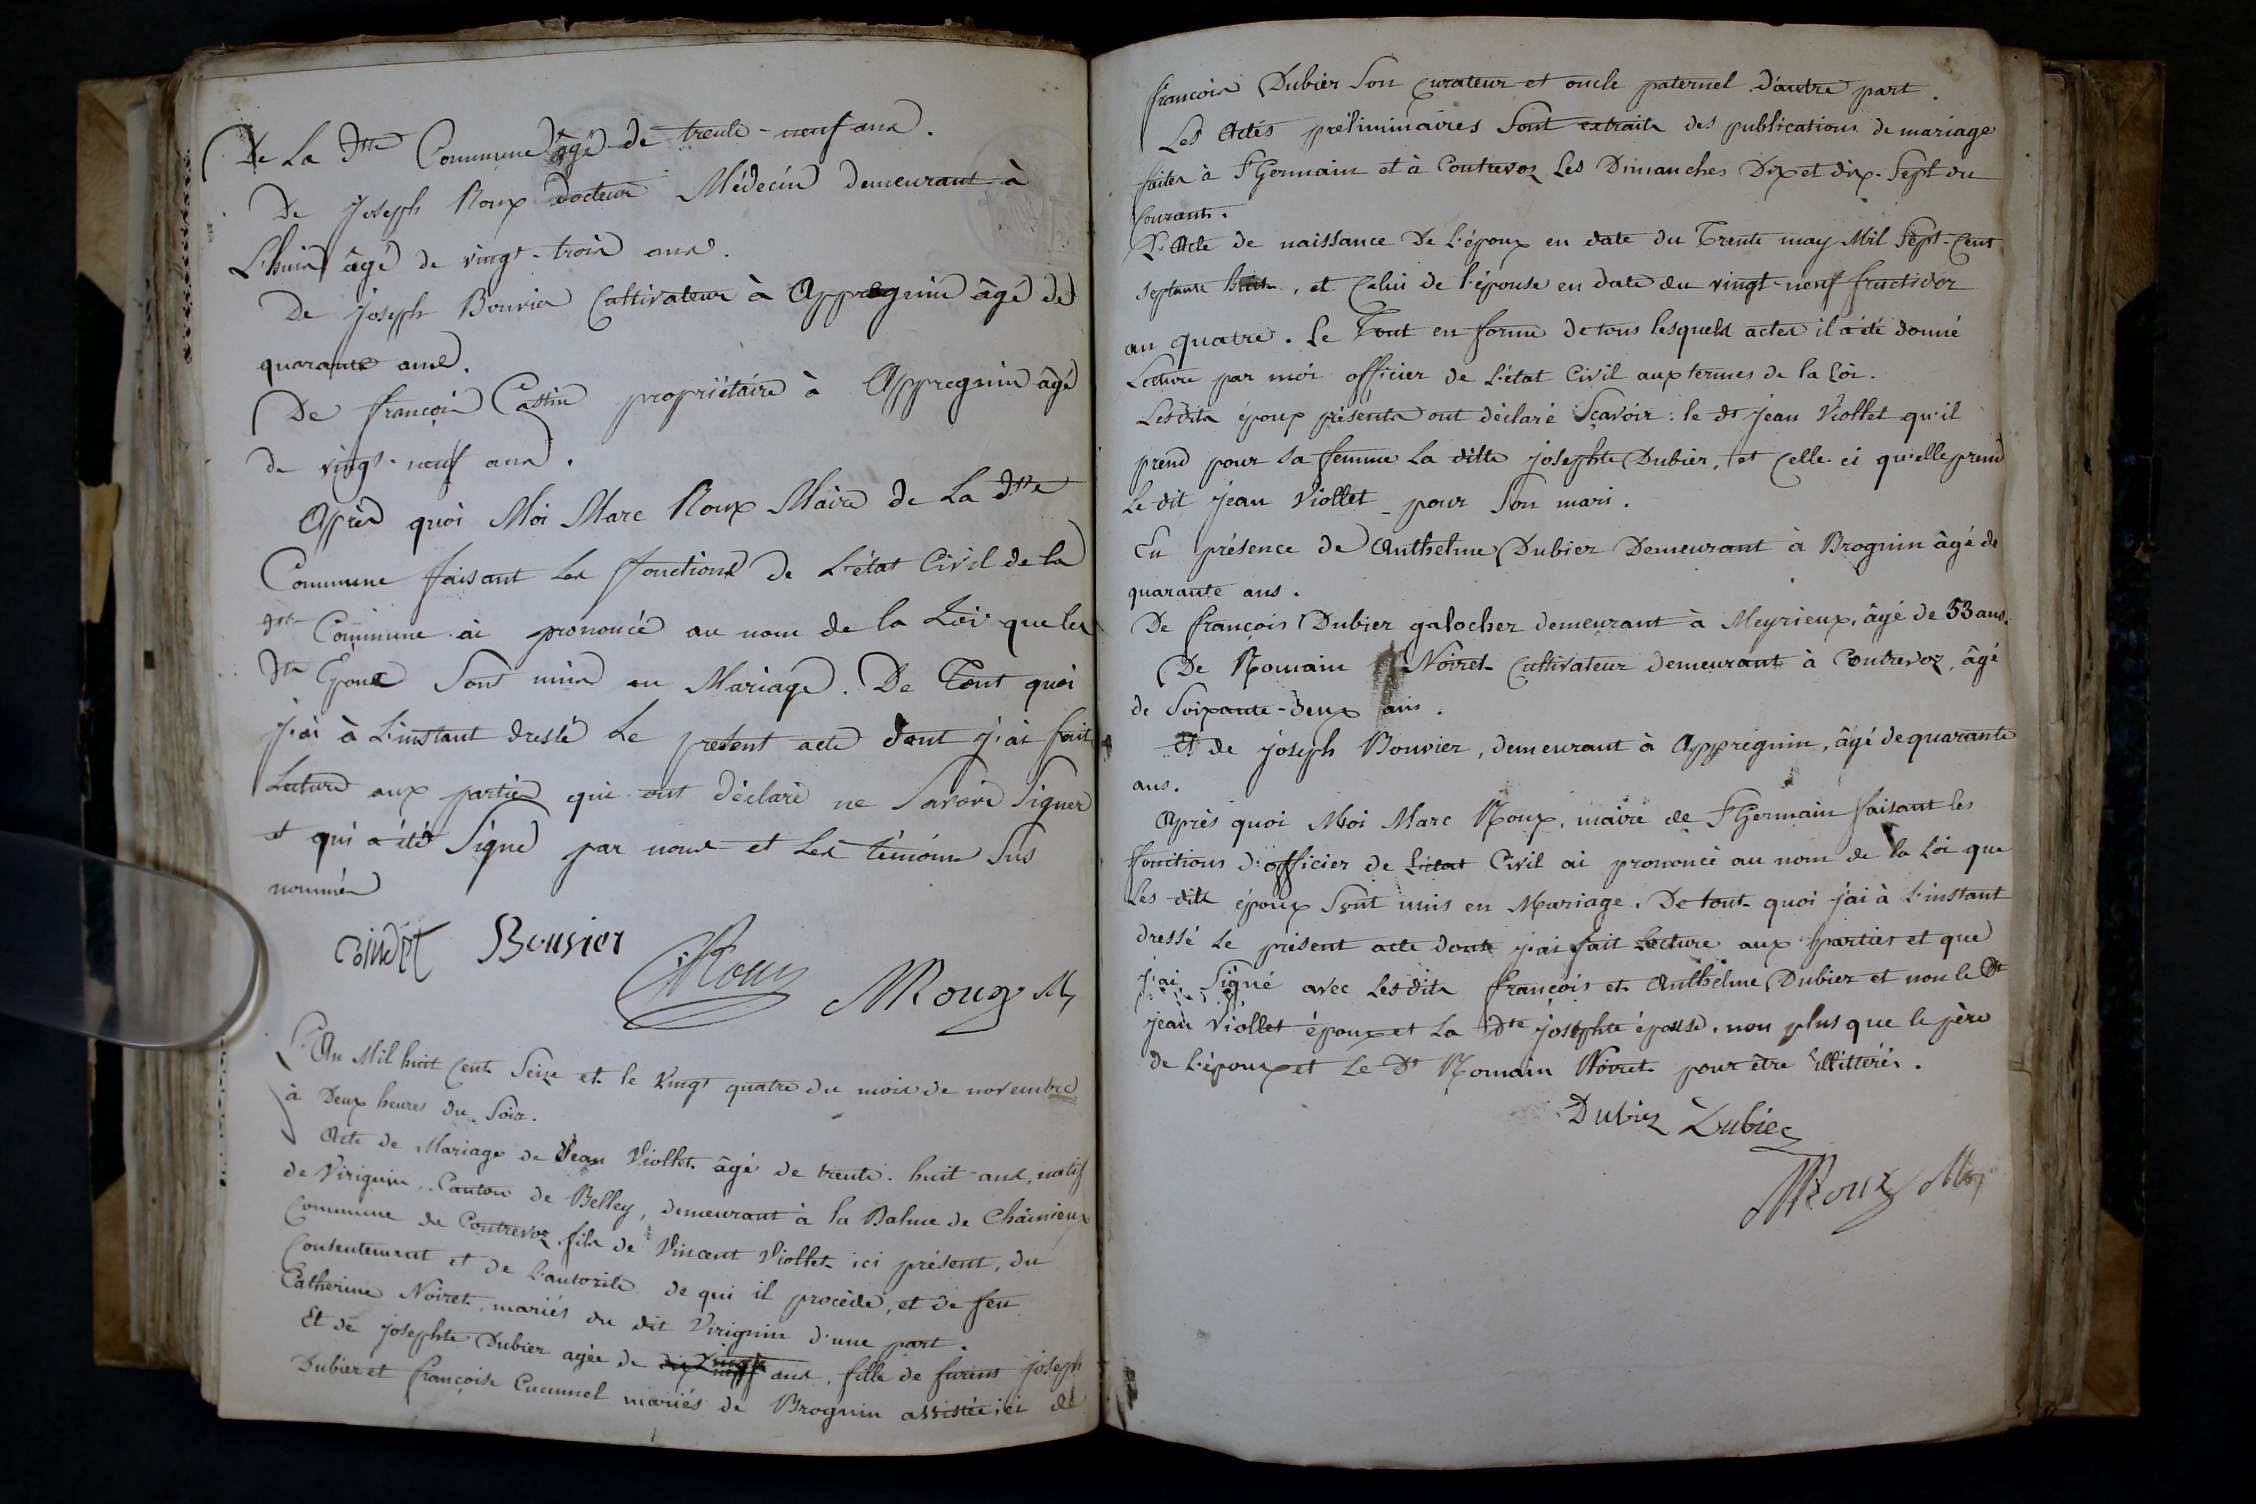 De La dtte Commune âgé de trente-neuf ans.
De Joseph Roux docteur Médecin demeurant à
L'huis âgé de vingt-trois ans.
De Joseph Bouvier Cultivateur à Appregnin âgé de
quarante ans.
De françois Cattin propriétaire à Appregnin âgé
de vingt-neuf ans.
Après quoi Moi Marc Roux Maire de La dtte
Commune faisant les fonctions de L'état Civil de la
dtte Commune ai prononcé au nom de la Loi que les
dts Epoux Sont unis en Mariage. De Tout quoi
j'ai à L'instant dressé Le present acte dont j'ai fait
Lecture aux parties qui ont déclaré ne Savoir Signer
et qui a été Signé par nous et Les témoins Sus
nommés
Bouvier
Roux
MRoux M
L'An Mil huit Cent Seize et le Vingt quatre du mois de novembre
à Deux heures du Soir.
Acte de Mariage de Jean Viollet âgé de trente-huit ans, natif
de Virignin Canton de Belley, demeurant à la Balme de Chámieux
Commune de Contrevoz fils de Vincent Viollet ici présent, du
Consentement et de L'autorité de qui il procède, et de feu
Catherine Noiret, mariés du dit Virignin d'une part.
Et de josephte Dubier agée de vingt ans, fille de furens joseph
Dubier et françoise Cucunel mariés de Brognin assistée ici de
françois Dubier Son Curateur et oncle paternel d'autre part.
Les Actes préliminaires Sont extraits des publications de mariage
faites à St Germain et à Contrevoz Les Dimanches Dix et dix-Sept du
Courant.
L'Acte de naissance De L'époux en date du Trente may Mil Sept-Cent
Septante huit, et Celui de l'épouse en date du vingt-neuf fructidor
an quatre. Le Tout en forme de tous lesquels actes il a été donné
Lecture par moi officier de L'état Civil aux termes de la Loi.
Lesdits époux présents ont déclaré Sçavoir: le dt Jean Viollet qu'il
prend pour Sa femme La ditte josephte Dubier, et Celle-ci qu'elle prend
Le dit Jean Viollet pour Son mari.
En présence de Anthelme Dubier Demeurant à Brognin âgé de
quarante ans.
De françois Dubier galocher demeurant à Meyrieux, âgé de 53 ans.
De Romain Noiret Cultivateur demeurant à Contrevoz, âgé
de Soixante-deux ans.
Et de joseph Bouvier, demeurant à Appregnin, âgé de quarante
ans.
Après quoi Moi Marc Roux, maire de St Germain faisant les
fonctions d'officier de L'état Civil ai prononcé au nom de la Loi que
Les dits époux Sont unis en Mariage. De tout quoi j'ai à L'instant
dressé Le présent acte dont j'ai fait Lecture aux parties et que
j'ai Signé avec Lesdits françois et Anthelme Dubier et non le Dt
jean Viollet époux et La Dte josephte épouse, non plus que le père
de L'époux et Le Dt Romain Noiret pour être illittérés.
Dubier Dubier
MRoux M